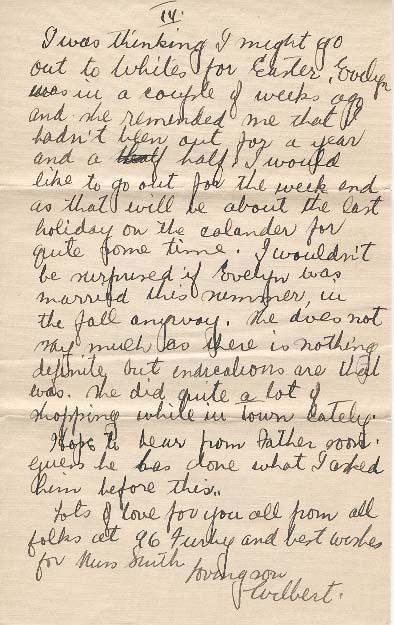 IV.
I was thinking I might go
out to Whites for Easter, Evelyn
was in a couple of weeks ago
and she reminded me that I
hadn't been out for a year
and a half. I would
like to go out for the week end
as that will be about the last
holiday on the calander for
quite some time. I wouldn't
be surprised if Evelyn was
married this summer, in
the fall anyway. She does not
say much as there is nothing
definite but indications are that
way. She did quite a lot of
shopping while in town lately.
Hope to hear from Father soon.
guess he has done what I asked
him before this..
Lots of love for you all from all
folks at 96 Furby and best wishes
for Miss Smith
Loving son
Wilbert.